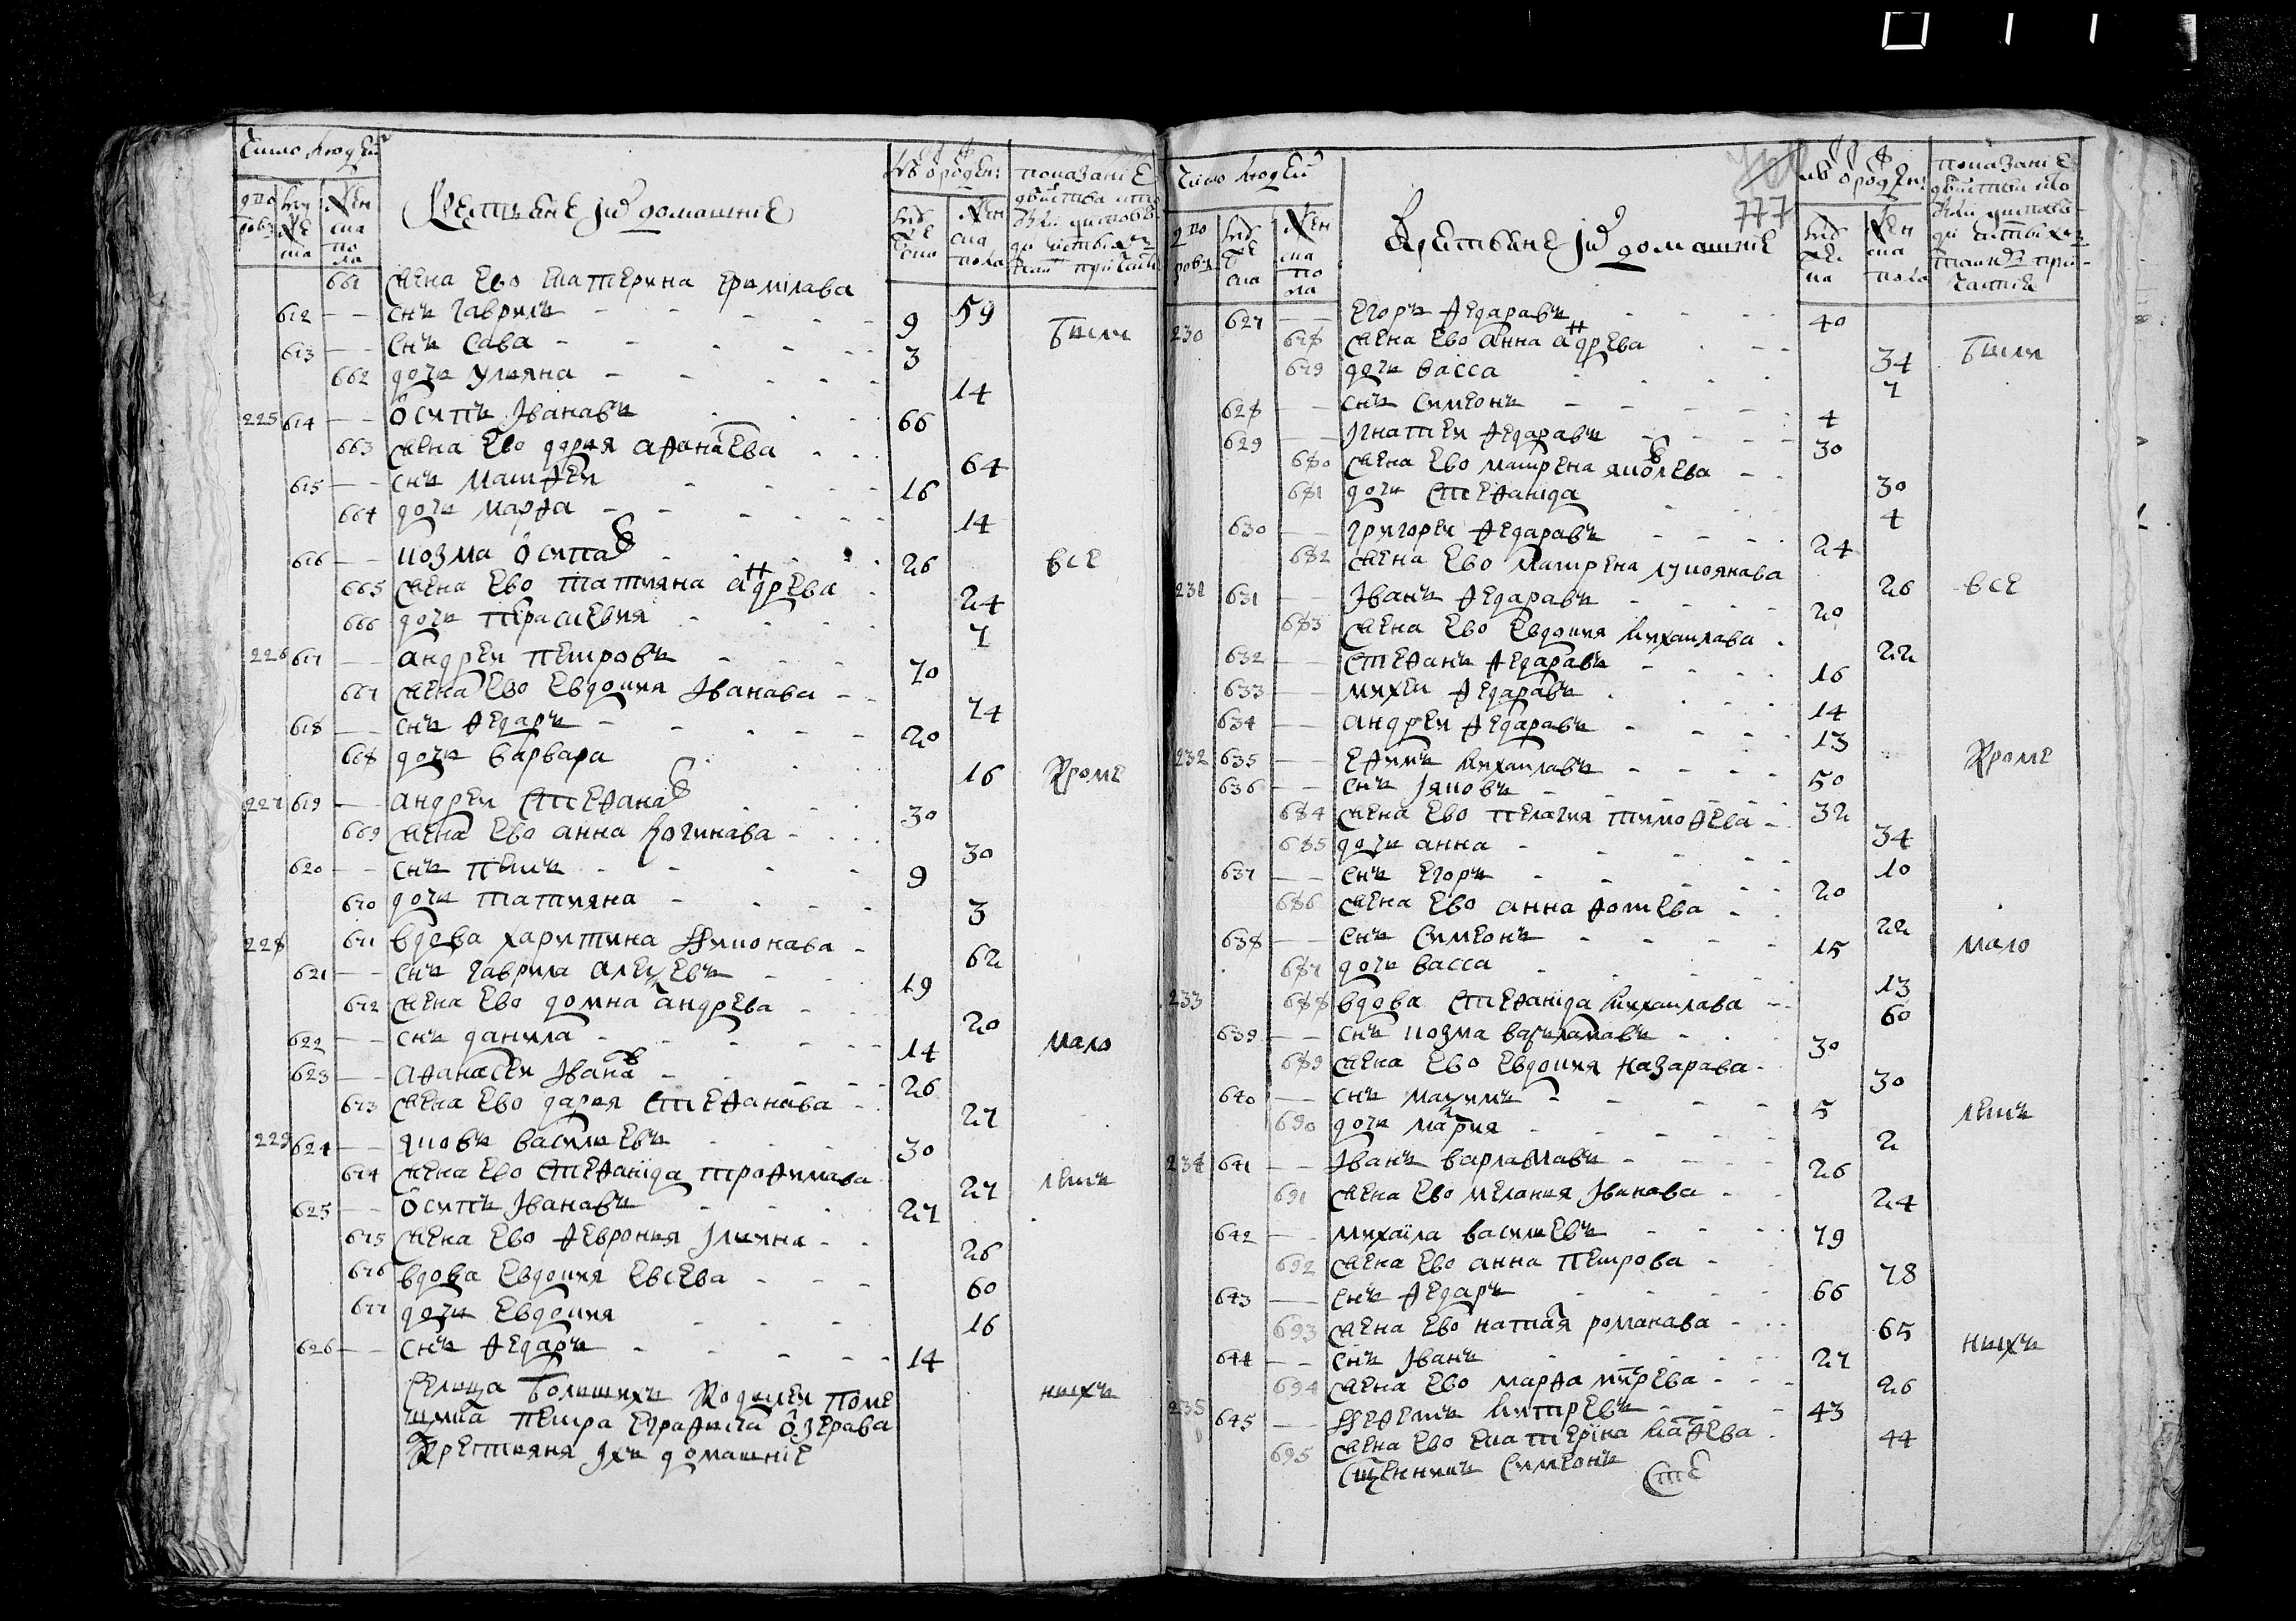 Число людей
Крестьяне и их домашние
661 жена Ево Екатерина Ермілава 59
612 — — снъ Гаврилъ 9
Были
613 — — снъ Сава 3
662 дочь улияна 14
225 614 — — Осипъ Іванавъ 66
663 жена Ево дария афанасева 64
615 — — снъ матфеи 16
664 дочь марфа 14
616 — — козма Осипав 26
все
665 жена Ево татияна андрева 24
666 дочь Параскевия 7
226 617 — — андреи петровъ 70
667 жена Ево Евдокия Іванава 74
618 — — снъ федаръ 20
668 дочь варвара 16
кроме
227 619 — — андреи Стефанав 30
669 жена Ево анна логинава 30
620 — — снъ петръ 9
670 дочь татияна 3
228 671 вдова харитина филонава 62
621 — — снъ гаврила алексевъ 19
672 жена Ево домна андрева 20
622 — — снъ данила 14
мало
623 — — афанасеи Іванав 26
673 жена Ево дария Стефанава 27
229 624 — — яковъ василевъ 30
674 жена Ево Стефанида трофимава 27
летъ
625 — — Осипъ Іванавъ 27
675 жена Ево феврония Ілина 26
676 вдова Евдокия Евсева 60
677 дочь Евдокия 16
626 — — снъ федаръ 14
нихъ
Селца болшихъ поме
щика петра Ефрафнева Озерава
крестияня іхъ домашніе
777
Число людей
Крестьяне и их домашние
230 627 — — Егоръ федаравъ 40
678 жена Ево анна андрева 34
Были
679 дочь васса 7
628 — — снъ Симеонъ 4
629 — — Ігнатеи федаравъ 30
680 жена Ево матрена яковлева 30
681 дочь Стефанида 4
630 — — григореи федаравъ 24
682 жена Ево матрена лукоянава 26
все
231 631 — — Іванъ федаравъ 20
683 жена Ево Евдокия михаилава 22
632 — — Стефанъ федаравъ 16
633 — — михеи федаравъ 14
634 — — андреи федаравъ 13
232 635 — — Ефимъ михаилавъ 50
кроме
636 — — снъ Іяковъ 32
684 жена Ево пелагия тимофева 34
685 дочь анна 10
637 — — снъ Егоръ 20
686 жена Ево анна фотева 22
638 — — снъ Симеонъ 15
мало
687 дочь васса 13
233 688 вдова Стефанида михаилава 60
639 — — снъ козма варламавъ 30
689 жена Ево Евдокия назарава 30
640 — — снъ максимъ 5
летъ
690 дочь мария 2
234 641 — — Іванъ варламавъ 26
691 жена Ево мелания Іванава 24
642 — — михаіла василевъ 79
692 жена Ево анна петрова 78
643 — — снъ федаръ 66
693 жена Ево наталя романава 65
нихъ
644 — — снъ Іванъ 27
694 жена Ево марфа 26
235 645 — — митревъ 43
695 жена Ево Екатеріна матфева 44
Сщенникъ Симеонъ Сте